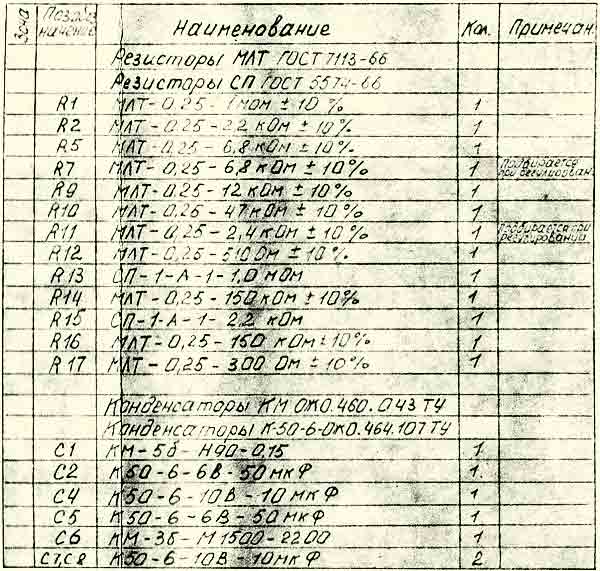 Зона Позобо- значение Наименование Кол. Примечан.
Резисторы МЛТ ГОСТ 7113-66
Резисторы СП ГОСТ 5574-66
R1 МЛТ-0,25-1 мОм ± 10 % 1
R2 МЛТ-0,25-22 кОм ± 10% 1
R5 МЛТ-0,25-6,8 кОм ± 10% 1
R7 МЛТ-0,25-6,8 кОм ± 10% 1 подбирается при регулирован.
R9 МЛТ-0,25-12 кОм ± 10% 1
R10 МЛТ-0,25-47 кОм ± 10% 1
R11 МЛТ-0,25-2,4 кОм ± 10% 1 подбирается при регулировании
R12 МЛТ-0,25-510 Ом ± 10% 1
R13 СП-1-А-1-1,0 мОм 1
R14 МЛТ-0,25-150 кОм ± 10% 1
R15 СП-1-А-1-2,2 кОм 1
R16 МЛТ-0,25-150 кОм ± 10% 1
R17 МЛТ-0,25-300 Ом ± 10% 1
Конденсаторы КМ ОЖО.460.043 ТУ
Конденсаторы К-50-6-ОЖО.464.107 ТУ
C1 КМ-5б-Н90-0,15 1
C2 К50-6-6В-50 мкФ 1.
C4 К50-6-10В-10 мкФ 1
C5 К50-6-6В-50 мкФ 1
C6 КМ-3б-М1500-2200 1
C7,C8 К50-6-10В-10мкФ 2